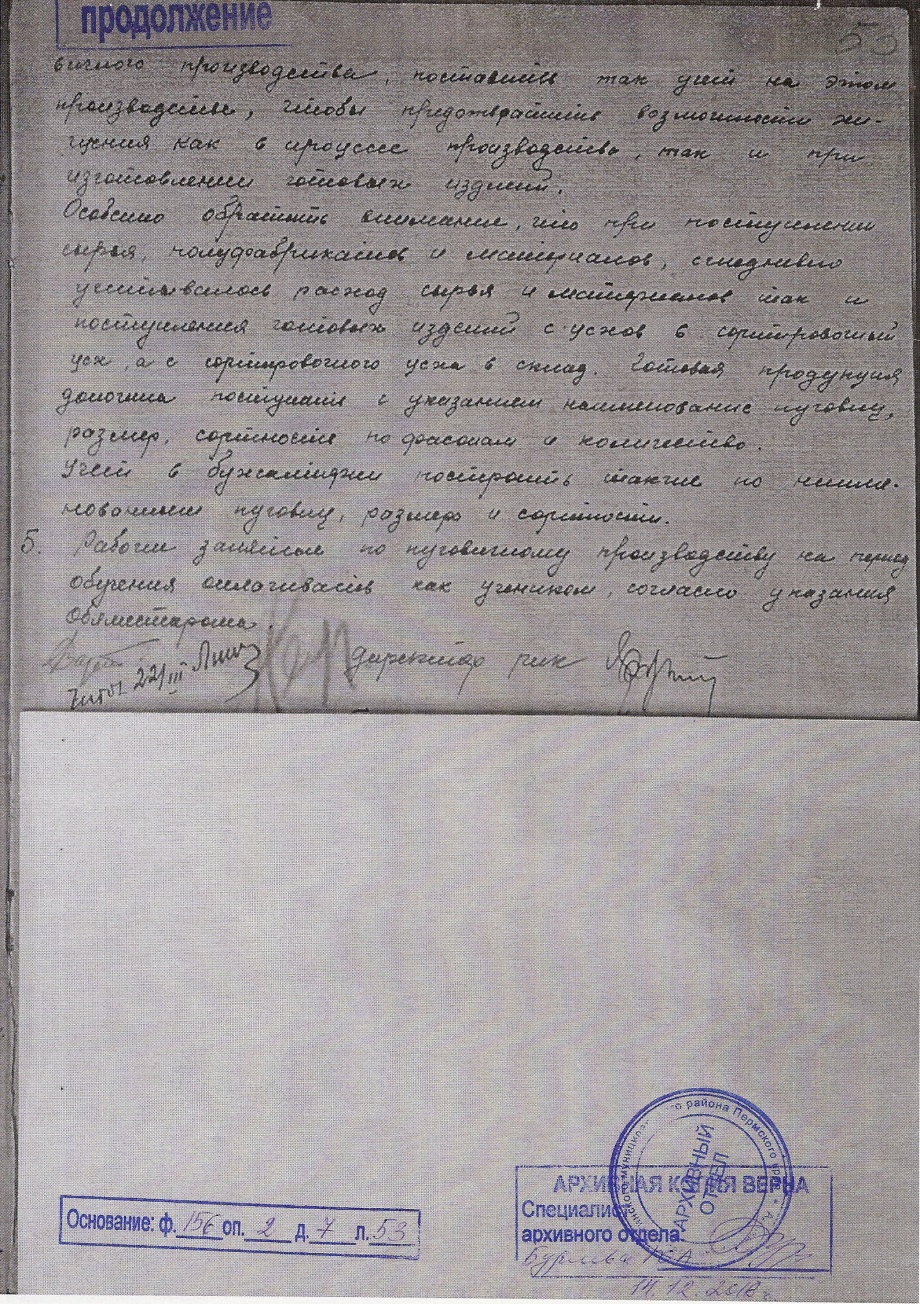 продолжение
53
вичного производства, поставить так учет на этом
производстве, чтобы предотвратить возможности хи-
щения как в процессе производства, так и при
изготовлении готовых изделий.
Особенно обратить внимание, что при поступлении
сырья, полуфабрикатов и материалов, ежедневно
учитывалось расход сырья и материалов так и
поступления готовых изделий с цехов в сортировочный
цех, а с сортировочного цеха в склад. Готовая продукция
должна поступать с указанием наименование пуговиц,
размер, сортность по фасонам и количество.
Учет в бухгалтерии построить также по наиме-
нованиям пуговиц, размера и сортности.
5. Рабочим занятым по пуговичному производству на период
обучения оплачивать как ученикам, согласно указания
Облместпрома.
Читал 22/III
директор рик
Основание: ф. 156 оп. 2 д. 7 л. 53
АРХИВНАЯ КОПИЯ ВЕРНА
Специалист
архивного отдела:
14.12.2018 г.
АРХИВНЫЙ
ОТДЕЛ
района Пермского